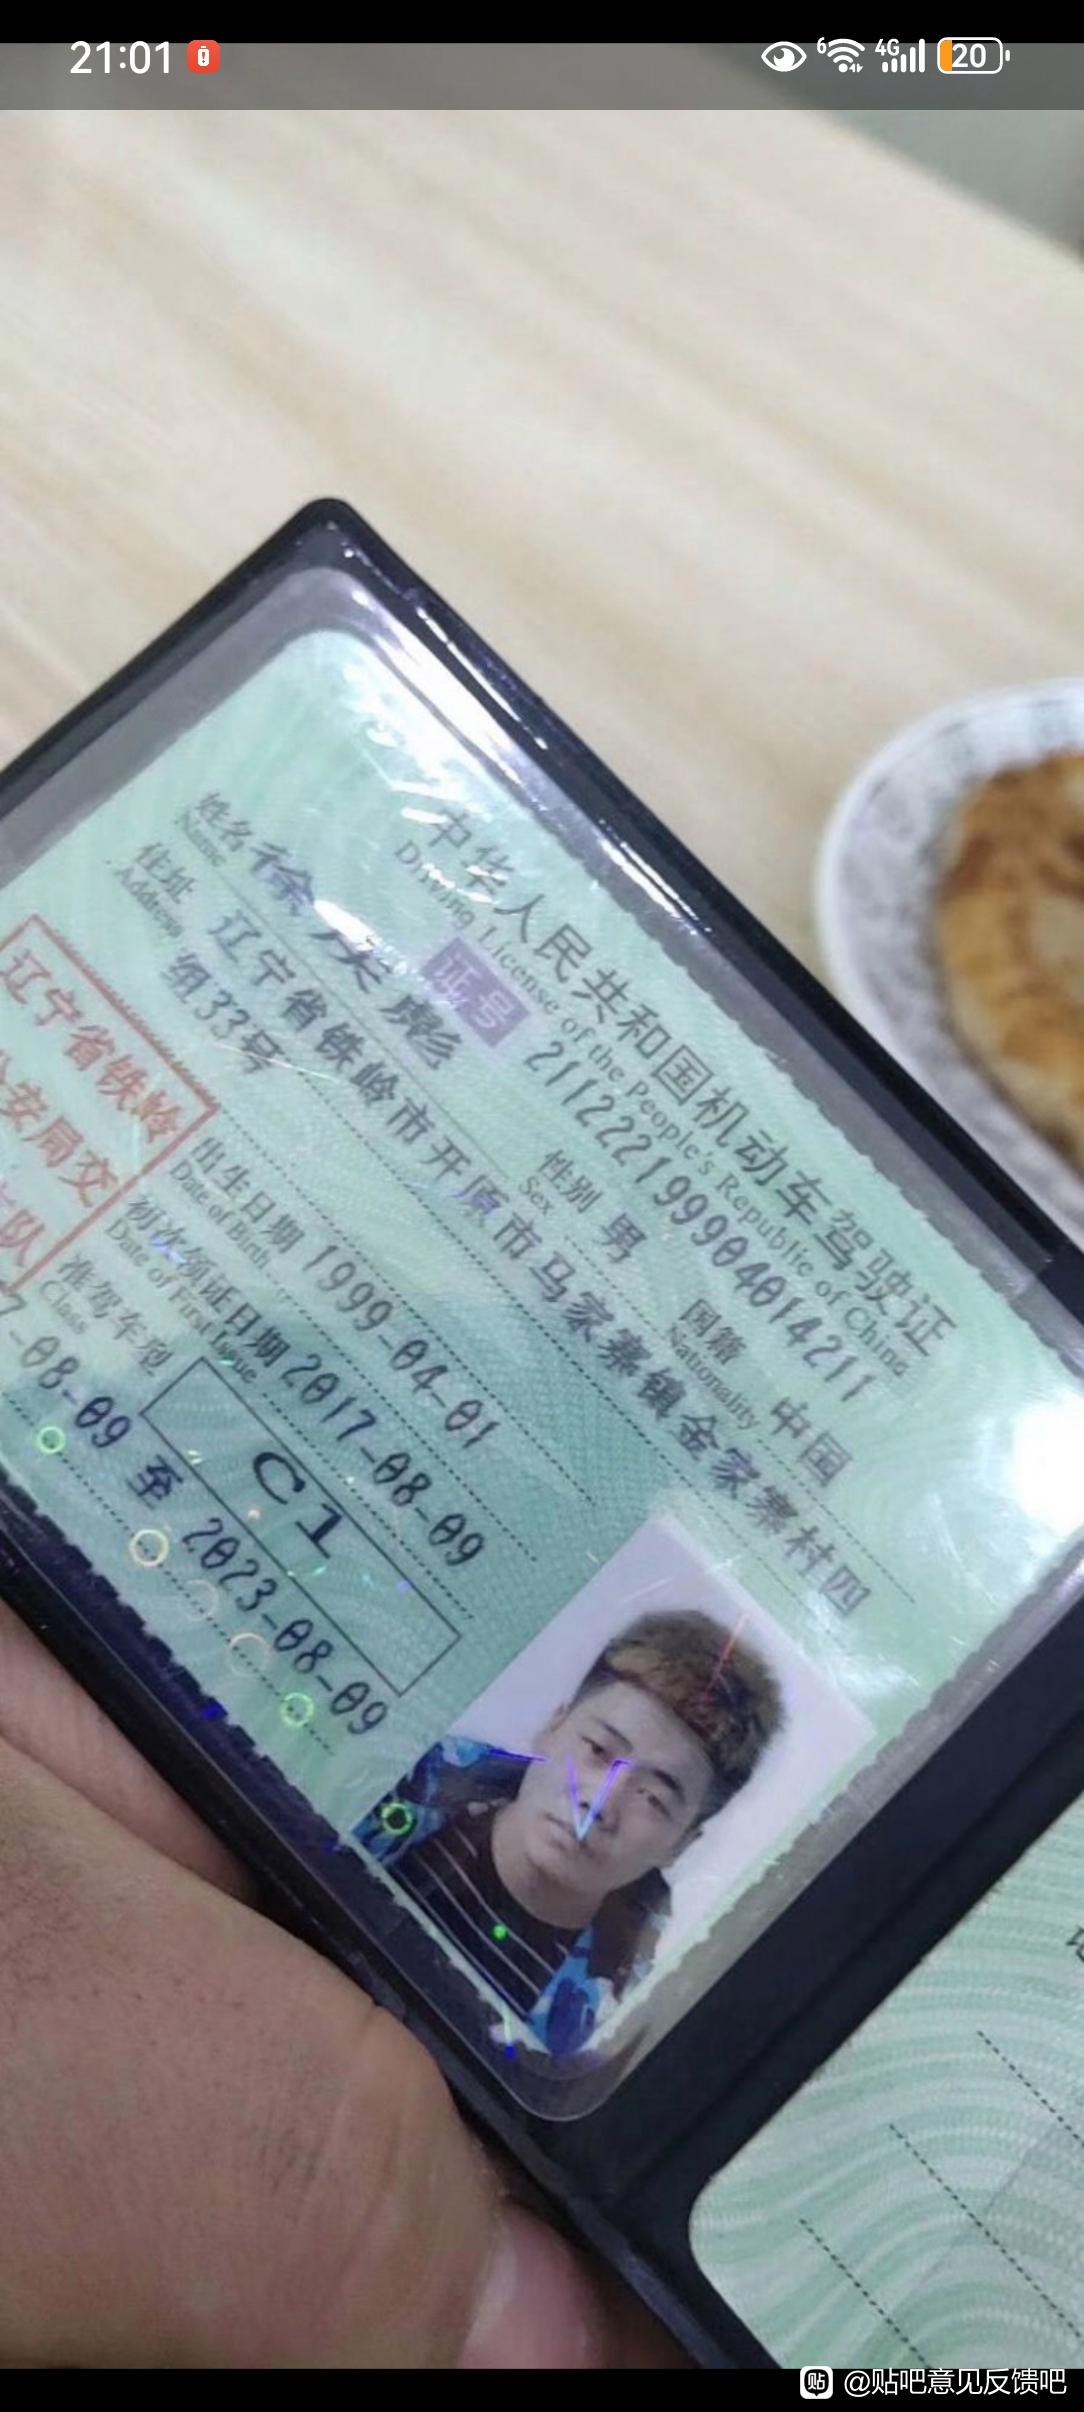 21:01
6
4G
20
中华人民共和国机动车驾驶证
Driving License of the People's Republic of China
证号 211222199904014211
姓名 徐
Name
性别 男
Sex
国籍 中国
Nationality
住址 辽宁省铁岭市开原市马家寨镇金家寨村四
Address
组33号
辽宁省铁岭
公安局交
队
出生日期 1999-04-01
Date of Birth
初次领证日期 2017-08-09
Date of First Issue
准驾车型 C1
Class
7-08-09 至 2023-08-09
贴 @贴吧意见反馈吧